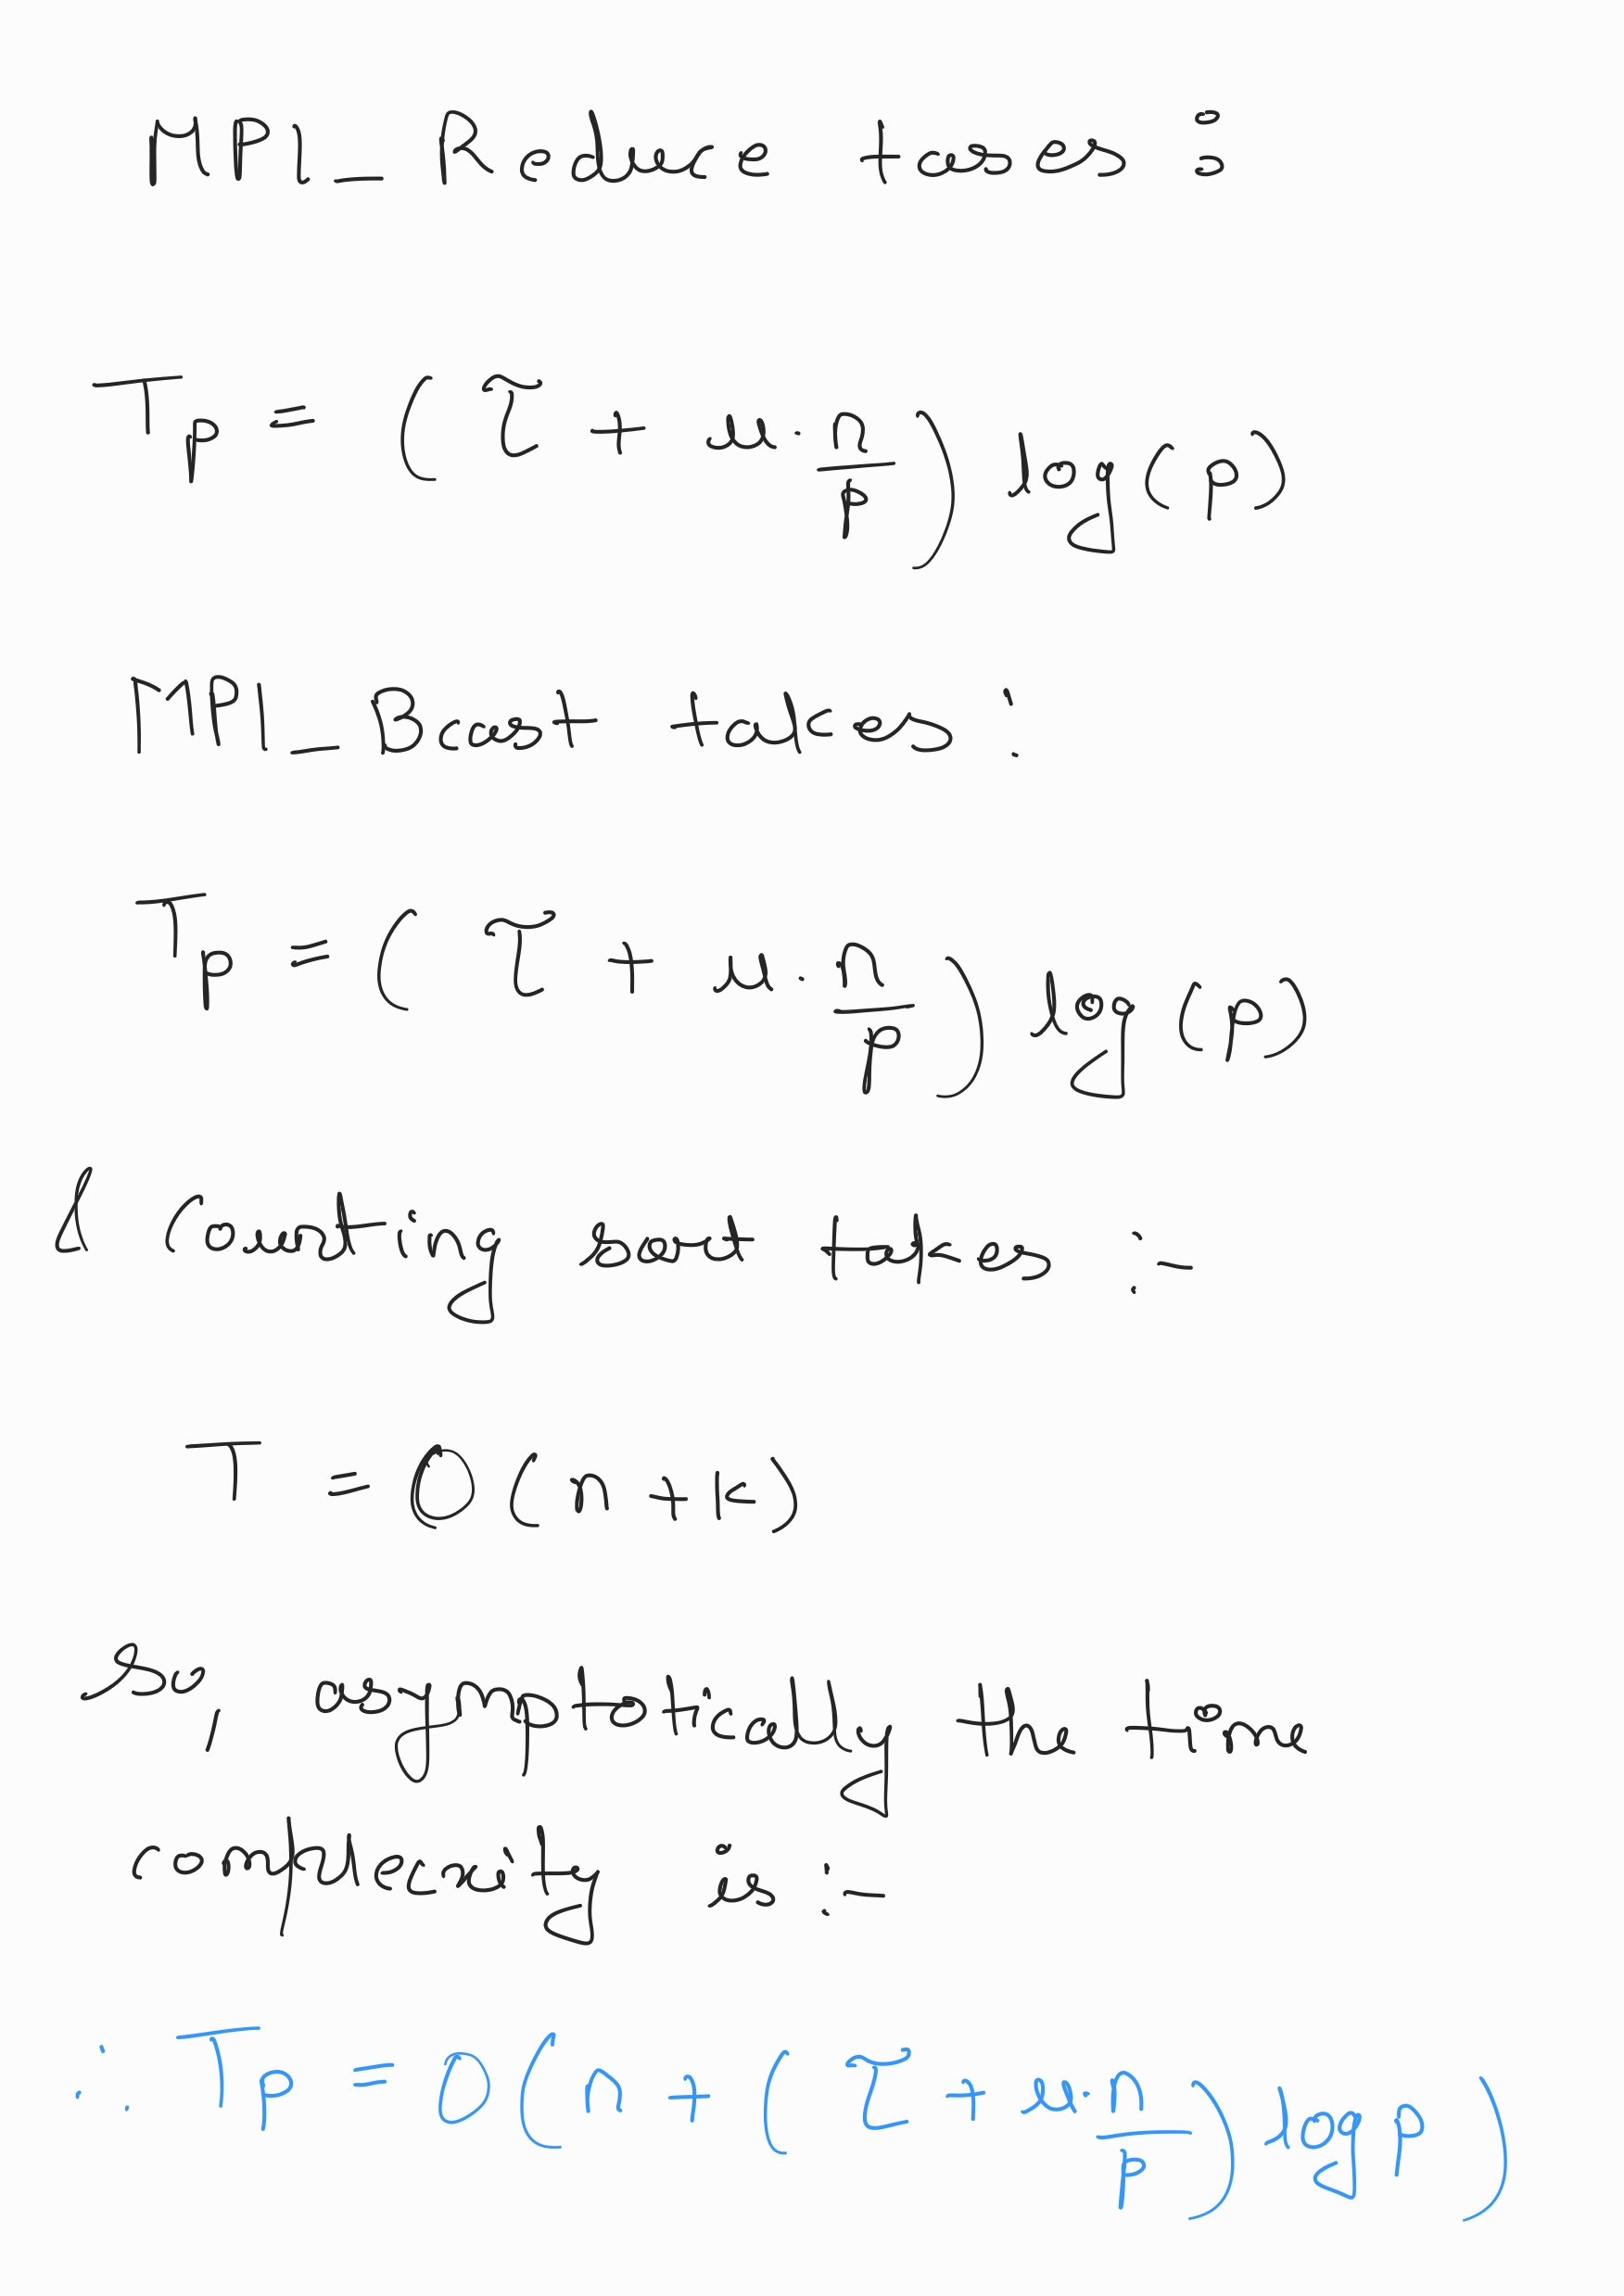 MPI_Reduce takes :
Tp = ( τ + μ · n/p ) log(p)
MPI_Bcast takes :
Tp = ( τ + μ · n/p ) log(p)
& Counting sort takes :-
T = O(n+k)
So, asymptotically the time
complexity is :-
∴ Tp = O( n + ( τ + μ · n/p ) log p )